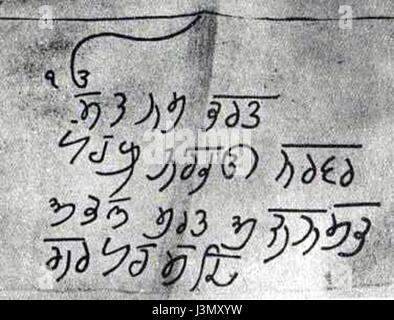 ੧ਓ
ਸਤ ਨਮ ਕਰਤ
ਪਰਖ ਨਰਭੳ ਨਰਵਰ
ਅਕਲ ਮਰਤ ਅਜਨ ਸਭ
ਗਰ ਪਰਸਦ
J3MXYW